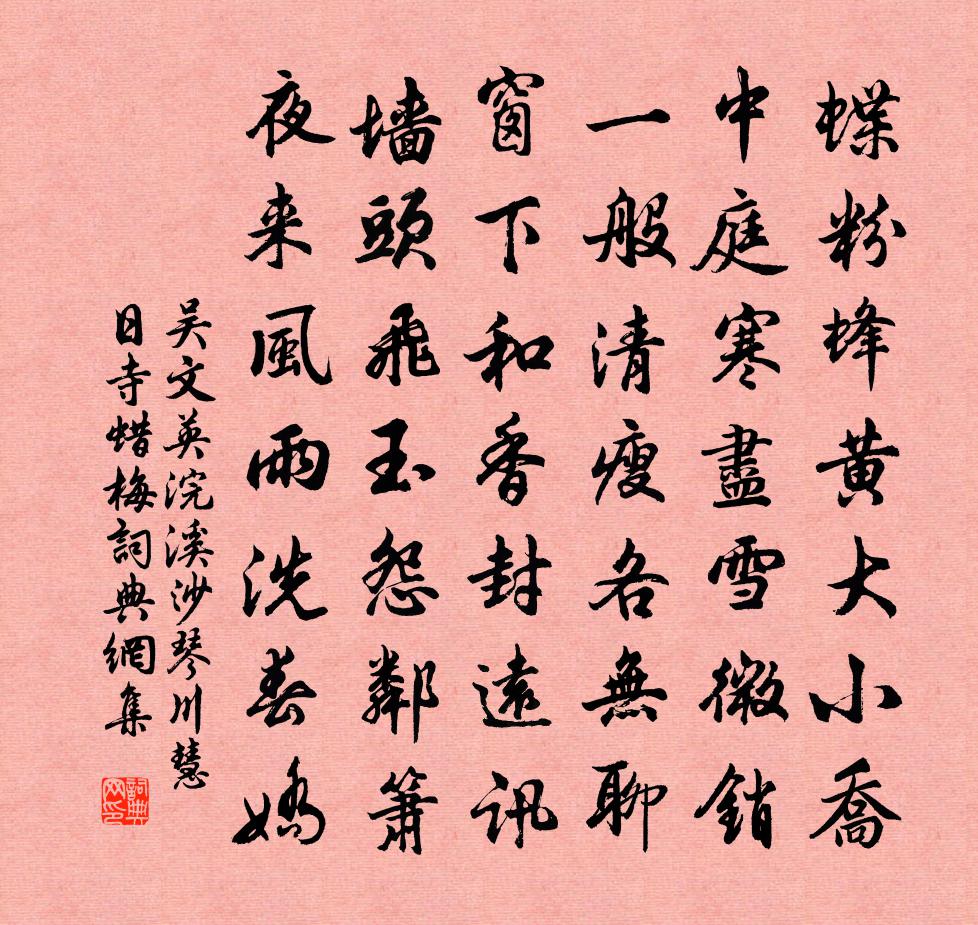 蝶粉蜂黄大小喬
中庭寒盡雪微銷
一般清瘦各無聊
窗下和香封遠訊
墻頭飛玉怨鄰簫
夜来風雨洗春嬌
吴文英浣溪沙琴川慧
日寺蜡梅詞典網集
詞典
网印